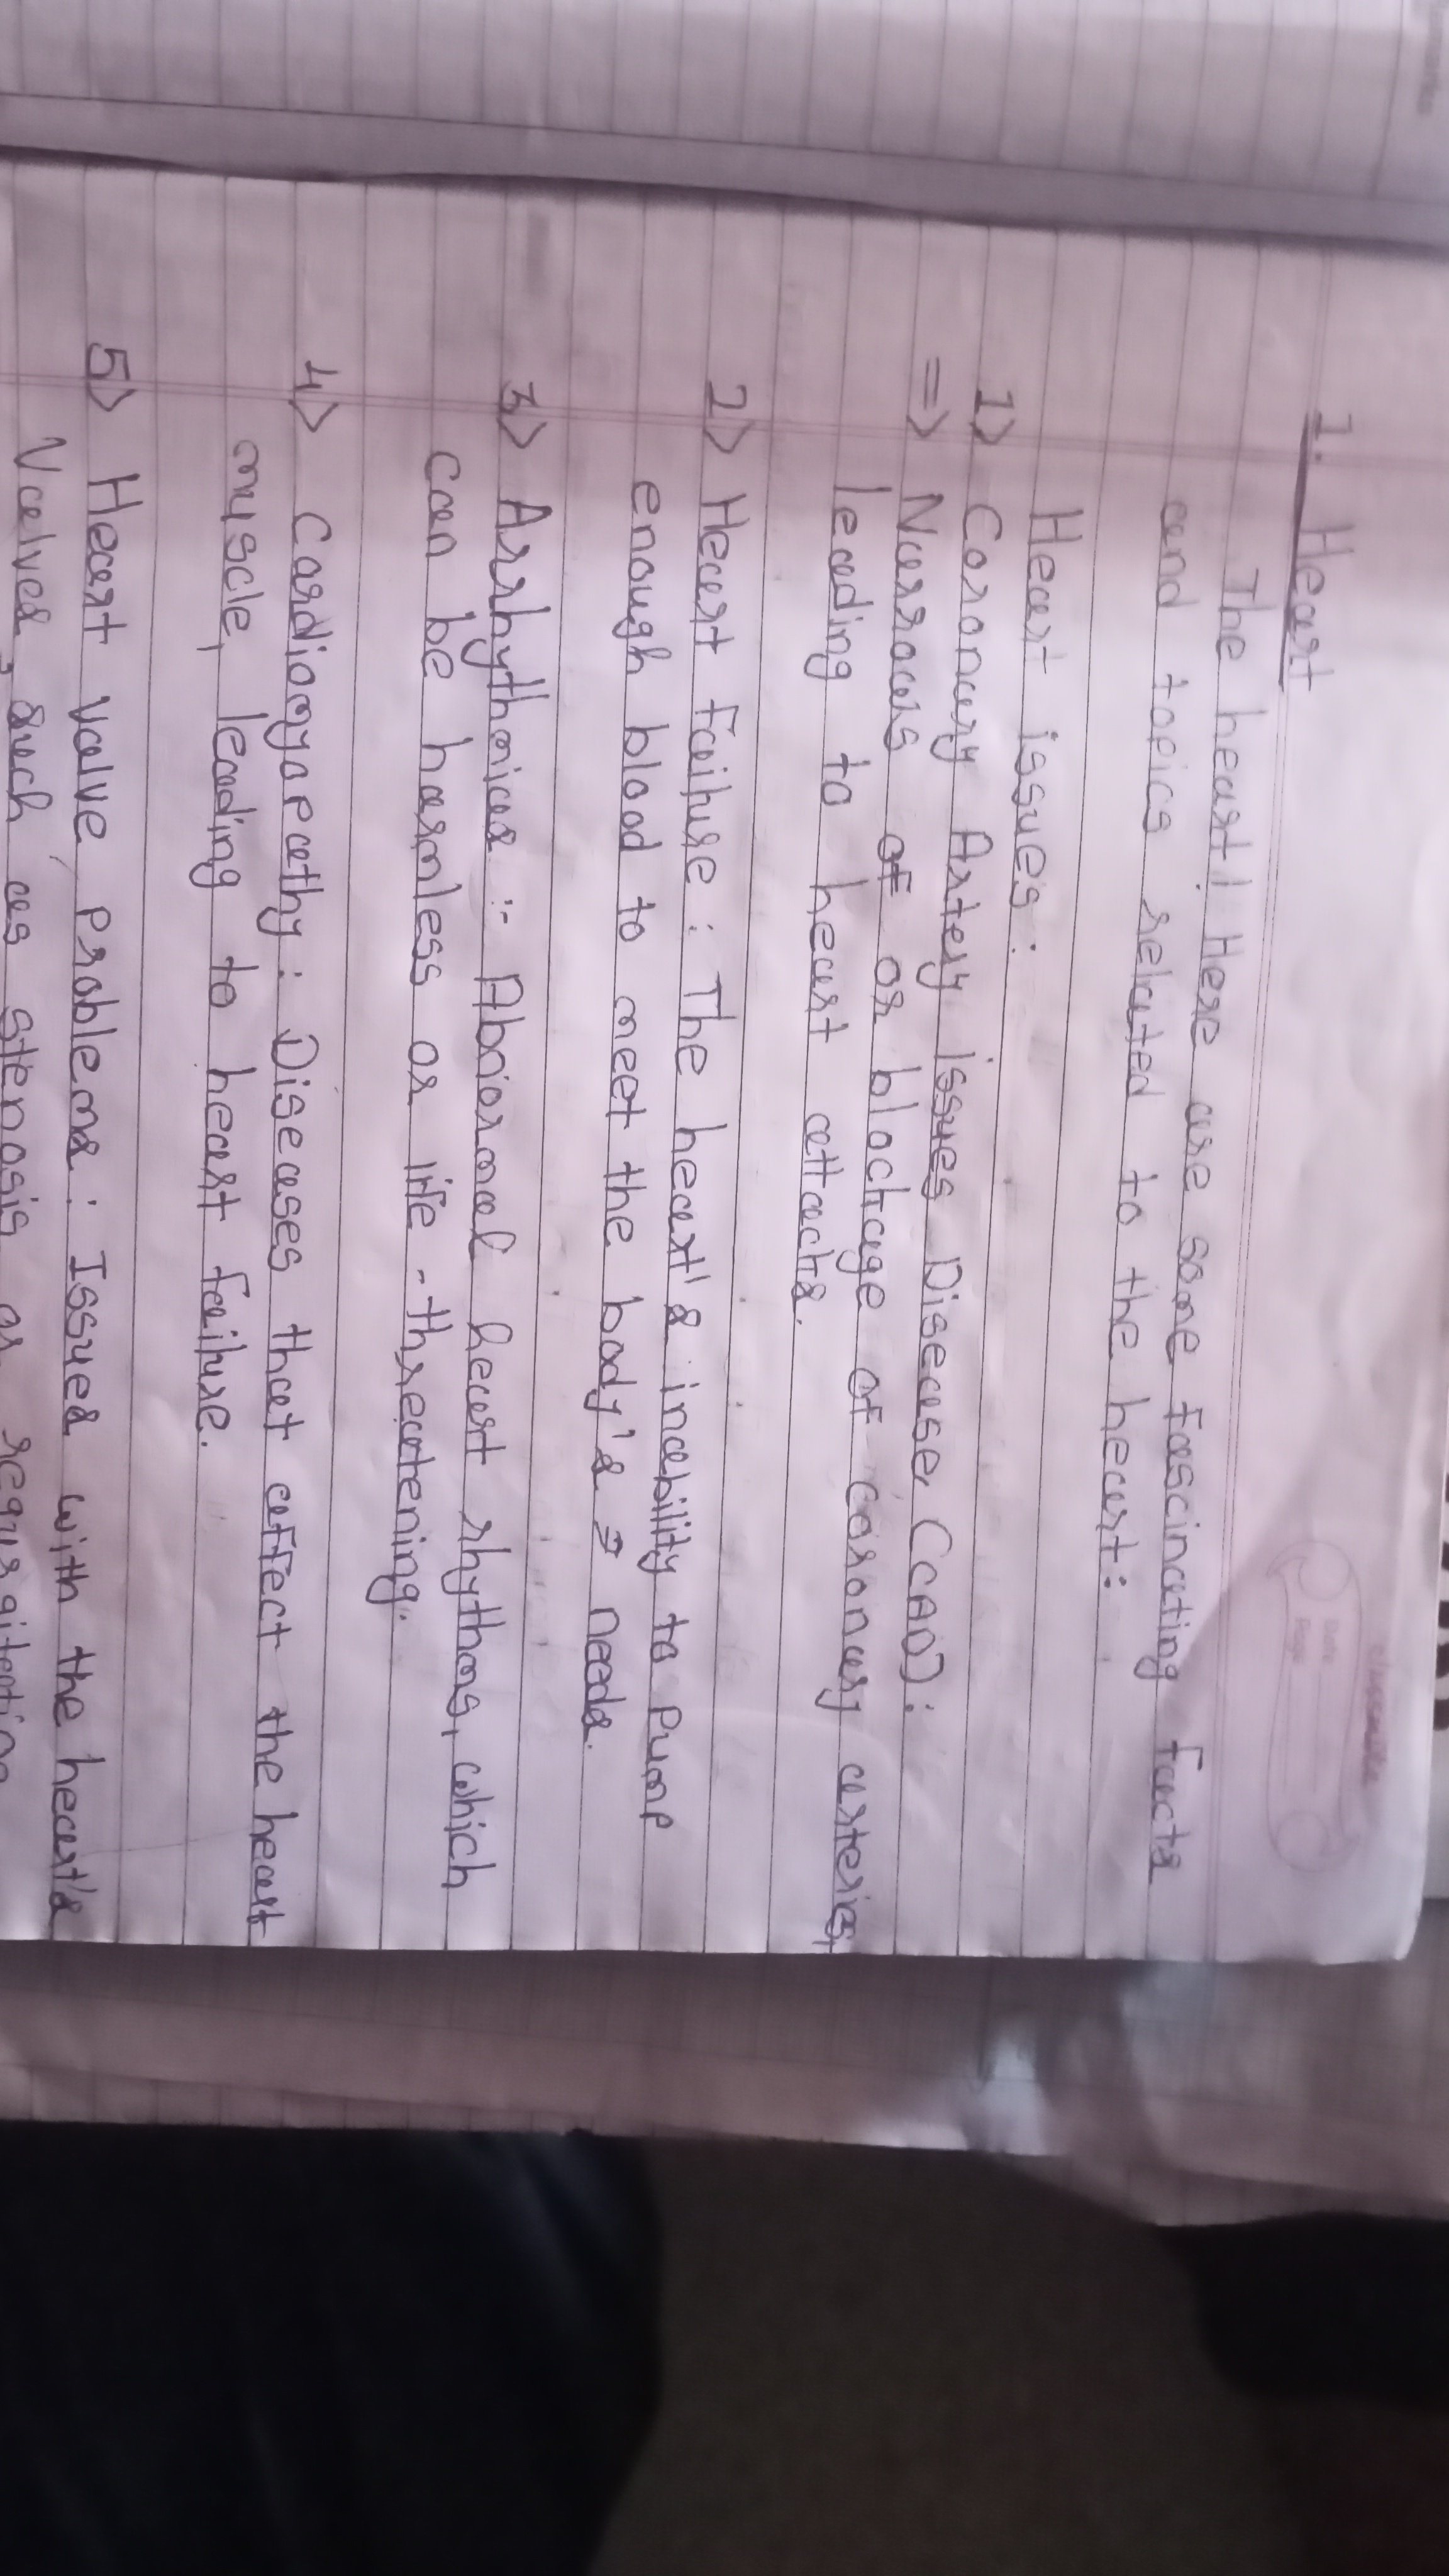 classmate
Date
Page
1. Heart
The heart! Here are some fascinating facts
and topics related to the heart:
Heart issues:
1> Coronary Artery issues Disease (CAD):
=> Narrows of or blockage of coronary arteries,
leading to heart attacks.
2> Heart failure: The heart's inability to pump
enough blood to meet the body's needs.
3> Arrhythmias :- Abnormal heart rhythms, which
can be harmless or life-threatening.
4> Cardiomyopathy: Diseases that affect the heart
muscle, leading to heart failure.
5> Heart valve problems: Issues with the heart's
Valves, such as stenosis or regurgitation